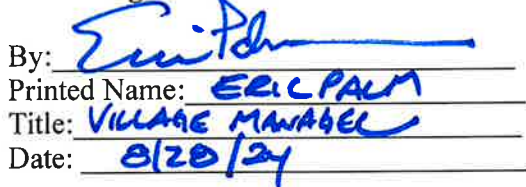 By: Eric Palm
Printed Name: ERIC PALM
Title: VILLAGE MANAGER
Date: 8/28/24